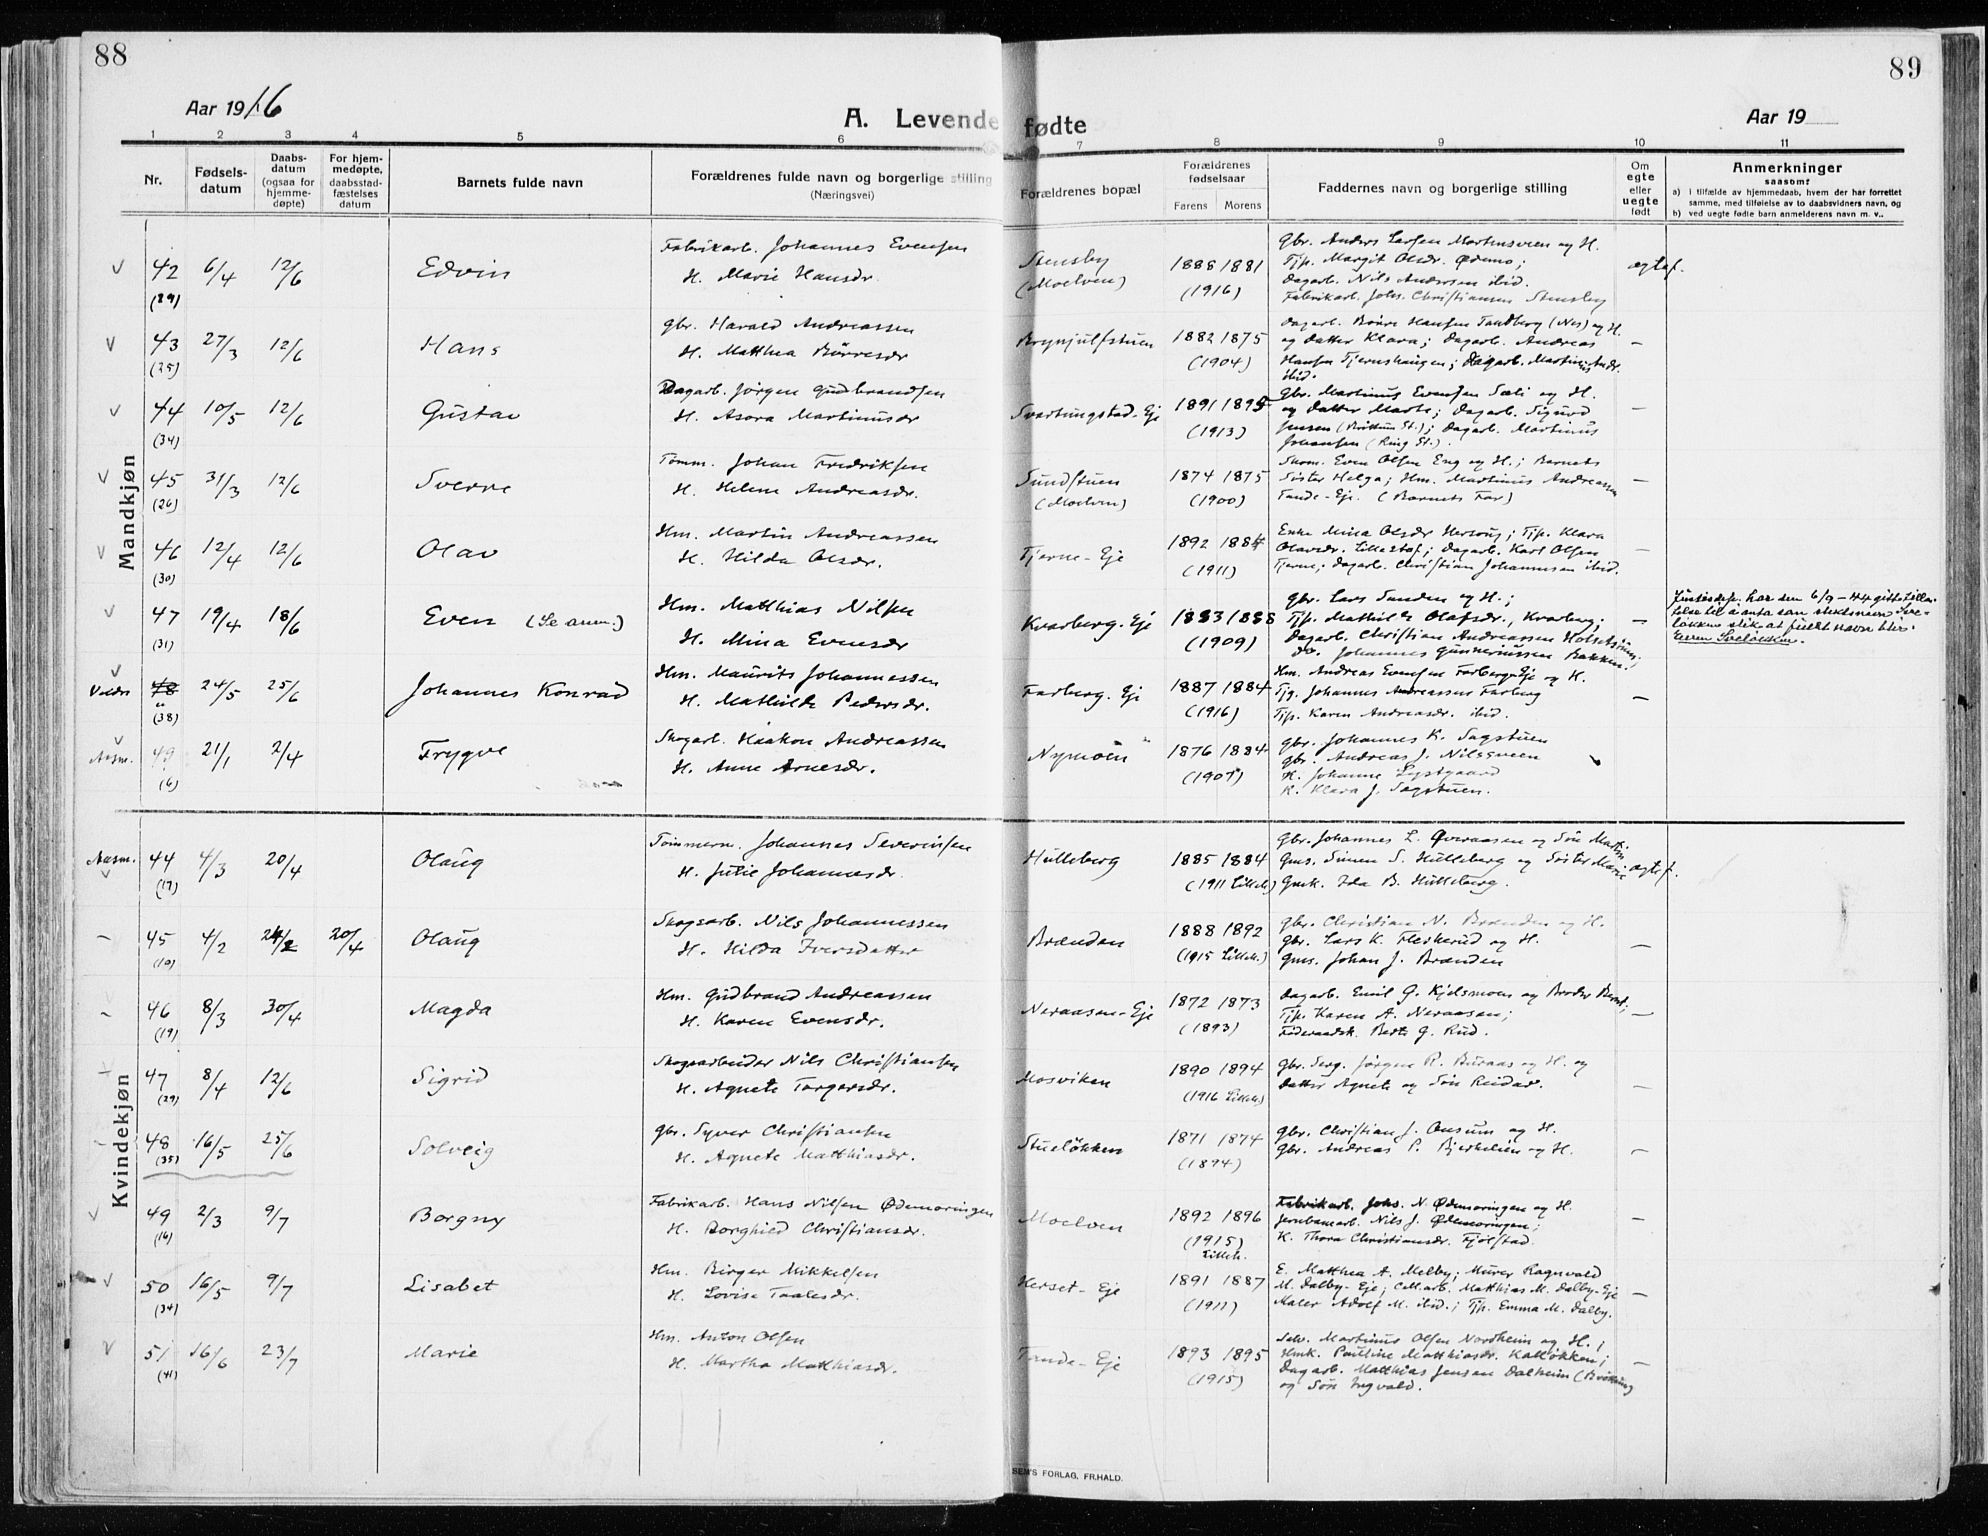 88
89
Aar 1916
A. Levende fødte
Aar 19
1 2 3 4 5 6 7 8 9 10 11
Nr.
Fødsels-
datum
Daabs-
datum
(ogsaa for
hjemme-
døpte)
For hjem-
medøpte,
daabsstad-
fæstelses
datum
Barnets fulde navn
Forældrenes fulde navn og borgerlige stilling
(Næringsvei)
Forældrenes bopæl
Forældrenes
fødselsaar
Farens Morens
Faddernes navn og borgerlige stilling
Om
egte
eller
uegte
født
Anmerkninger
saasom:
a) i tilfælde av hjemmedaab, hvem der har forrettet
samme, med tilføielse av to daabsvidners navn, og
b) ved uegte fødte barn anmelderens navn m. v..
Mandkjøn
42 6/4 12/6 Edvin
(29)
Fabrikarb. Johannes Evensen
H. Marie Hansdr.
Stensby
(Moelven)
1888 1881
(1916)
Gbr. Anders Larsen Martinsveen og H.
Tjp. Margit Olsdr. Ødemo;
Dagarb. Nils Andersen ibid.
Fabrikarb. Johs. Christiansen Stensby
egtef.
43 27/3 12/6 Hans
(25)
gbr. Harald Andreassen
H. Matthea Børresdr
Brynjulfstuen
1882 1875
(1904)
Dagarb. Børre Hansen Tandberg (Nes) og H.
og datter Klara; Dagarb. Andreas
Hansen Tjernshaugen; Dagarb. Martin Andr.
ibid.
—
44 10/5 12/6 Gustav
(34)
Dagarb. Jørgen Gudbrandsen
H. Asora Martinusdr
Svartungstad-Eje
1891 1895
(1913)
Gbr. Martinus Evensen Sæli og H.
og datter Marte; Dagarb. Sigurd
Jensen (Brøttum St.); Dagarb. Martinus
Johansen (Ring St.).
—
45 31/3 12/6 Sverre
(26)
Tømm. Johan Fredriksen
H. Helene Andreasdr.
Sundstuen
(Moelven)
1874 1875
(1900)
Skom. Even Olsen Eng og H.; Barnets
Søster Helga; Hm. Martinus Andreassen
Tande-Eje. (Barnets Far)
—
46 12/4 12/6 Olav
(30)
Hm. Martin Andreassen
H. Hilda Olsdr.
Tjerne-Eje
1892 1884
(1911)
Enke Mina Olsdr Hersoug; Tjp. Klara
Olavsdr. Lillestof; Dagarb. Karl Olsen
Tjerne; Dagarb. Christian Johannesen ibid.
—
47 19/4 18/6 Even (Se anm.)
(31)
Hm. Matthias Nilsen
H. Mina Evensdr
Kvarberg-Eje
1883 1888
(1909)
Gbr. Lars Sanden og H.;
Tjp. Mathilde Olafsdr., Kvarberg;
Dagarb. Christian Andreassen
do. Johannes Gunneriussen Bakken.
—
Justisdep. har den 6/9-44 gitt tilla-
telse til å anta som slektsnavn Sve-
løkken slik at fullt navn blir:
Even Sveløkken.
Veldre 48 24/5 25/6 Johannes Konrad
(38)
Hm. Maurits Johannessen
H. Mathilde Pedersdr.
Farberg-Eje
1887 1884
(1916)
Hm. Andreas Evensen Farberg-Eje og H.
Tjg. Johannes Andreassen Farberg
Tjp. Karen Andreasdr. ibid.
—
Aasm. 49 21/1 2/4 Trygve
(6)
Skogarb. Haakon Andreassen
H. Anne Arnesdr.
Nymoen
1876 1884
(1907)
Gbr. Johannes K. Sagstuen
Gbr. Andreas J. Nilsveen
K. Johanne Lystgaard
K. Klara J. Sagstuen.
Kvindekjøn
Aasm. 44 4/3 20/4 Olaug
(17)
Tømmerm. Johannes Severinsen
H. Julie Johannesdr.
Hulleberg
1885 1884
(1911 Lilleh.)
Gbr. Johannes L. Øveraasen og Søn Martin
Gms. Simen S. Hulleberg og Søster Marie
Gmk. Ida B. Hulleberg.
egtef.
45 4/2 24/2 20/4 Olaug
(10)
Skogsarb. Nils Johannessen
H. Hilda Iversdatter
Brænden
1888 1892
(1915 Lilleh.)
Gbr. Christian N. Brænden og H.
Gbr. Lars K. Fleskerud og H.
Gms. Johan J. Brænden
—
46 8/3 30/4 Magda
(19)
Hm. Gudbrand Andreassen
H. Karen Evensdr.
Neraasen-Eje
1872 1873
(1893)
Dagarb. Emil G. Kjelsmoen og Broder Bernt;
Tjp. Karen A. Neraasen;
Føderaadsk. Berte G. Rud.
—
47 8/4 12/6 Sigrid
(29)
Skogsarbeider Nils Christiansen
H. Agnete Torgersdr.
Mosviken
1890 1894
(1916 Lilleh)
Gbr. Serg. Jørgen R. Buraas og H. og
datter Agnete og Søn Reidar.
—
48 16/5 25/6 Solveig
(35)
Gbr. Syver Christiansen
H. Agnete Matthiasdr.
Stueløkken
1871 1874
(1894)
Gbr. Christian J. Onsum og H.
Gbr. Andreas P. Bjerkelien og H.
—
49 2/3 9/7 Borgny
(16)
Fabrikarb. Hans Nilsen Ødemoringen
H. Borghild Christiansdr.
Moelven
1892 1896
(1915)
Lilleh.
Fabrikarb. Johs. N. Ødemoringen og H.
Jernbanearb. Nils J. Ødemoringen;
K. Thora Christiansdr. Fjølstad.
—
50 16/5 9/7 Lisabet
(34)
Hm. Birger Mikkelsen
H. Lovise Paalesdr.
Herset-Eje
1891 1887
(1911)
E. Matthea A. Melby; Murer Ragnvald
M. Dalby-Eje; Cell.arb. Matthias M. Dalby-Eje
Maler Adolf M. ibid.; Tjp. Emma M. Dalby.
—
51 16/6 23/7 Marie
(41)
Hm. Anton Olsen
H. Martha Matthiasdr.
Tande-Eje
1893 1895
(1915)
Selv. Martinus Olsen Nordheim og H.;
Hmk. Pauline Matthiasdr. Kalløkken;
Dagarb. Matthias Jensen Dalheim
og Søn Ingvald.
—
SEM'S FORLAG, FR.HALD.